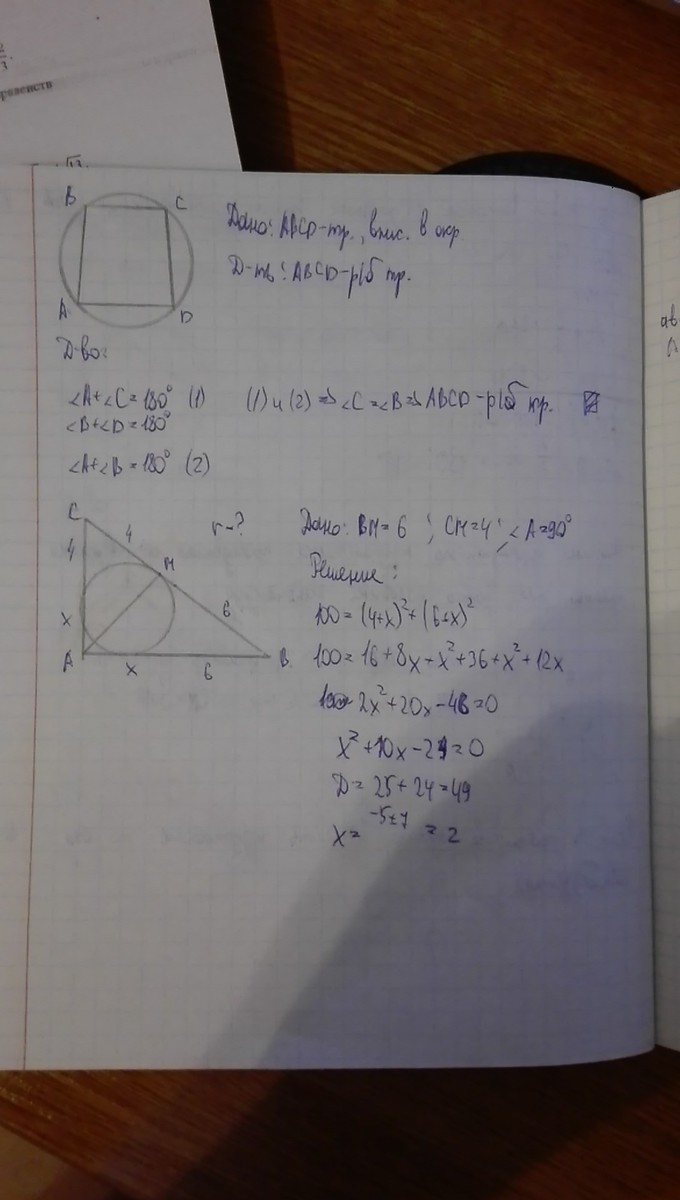 2
3
равенств
√13
B C
A D
Дано: ABCD-тр., впис. в окр
Д-ть: ABCD-р/б тр.
Д-во:
∠A+∠C=180° (1) (1) и (2) ⇒ ∠C=∠B ⇒ ABCD-р/б тр.
∠B+∠D=180°
∠A+∠B=180° (2)
C
4 4
r-?
M
x 6
A x 6 B
Дано: BM=6 ; CM=4 ; ∠A=90°
Решение:
100=(4+x)²+(6+x)²
100=16+8x+x²+36+x²+12x
2x²+20x-48=0
x²+10x-24=0
D=25+24=49
x= -5±7 = 2
ав